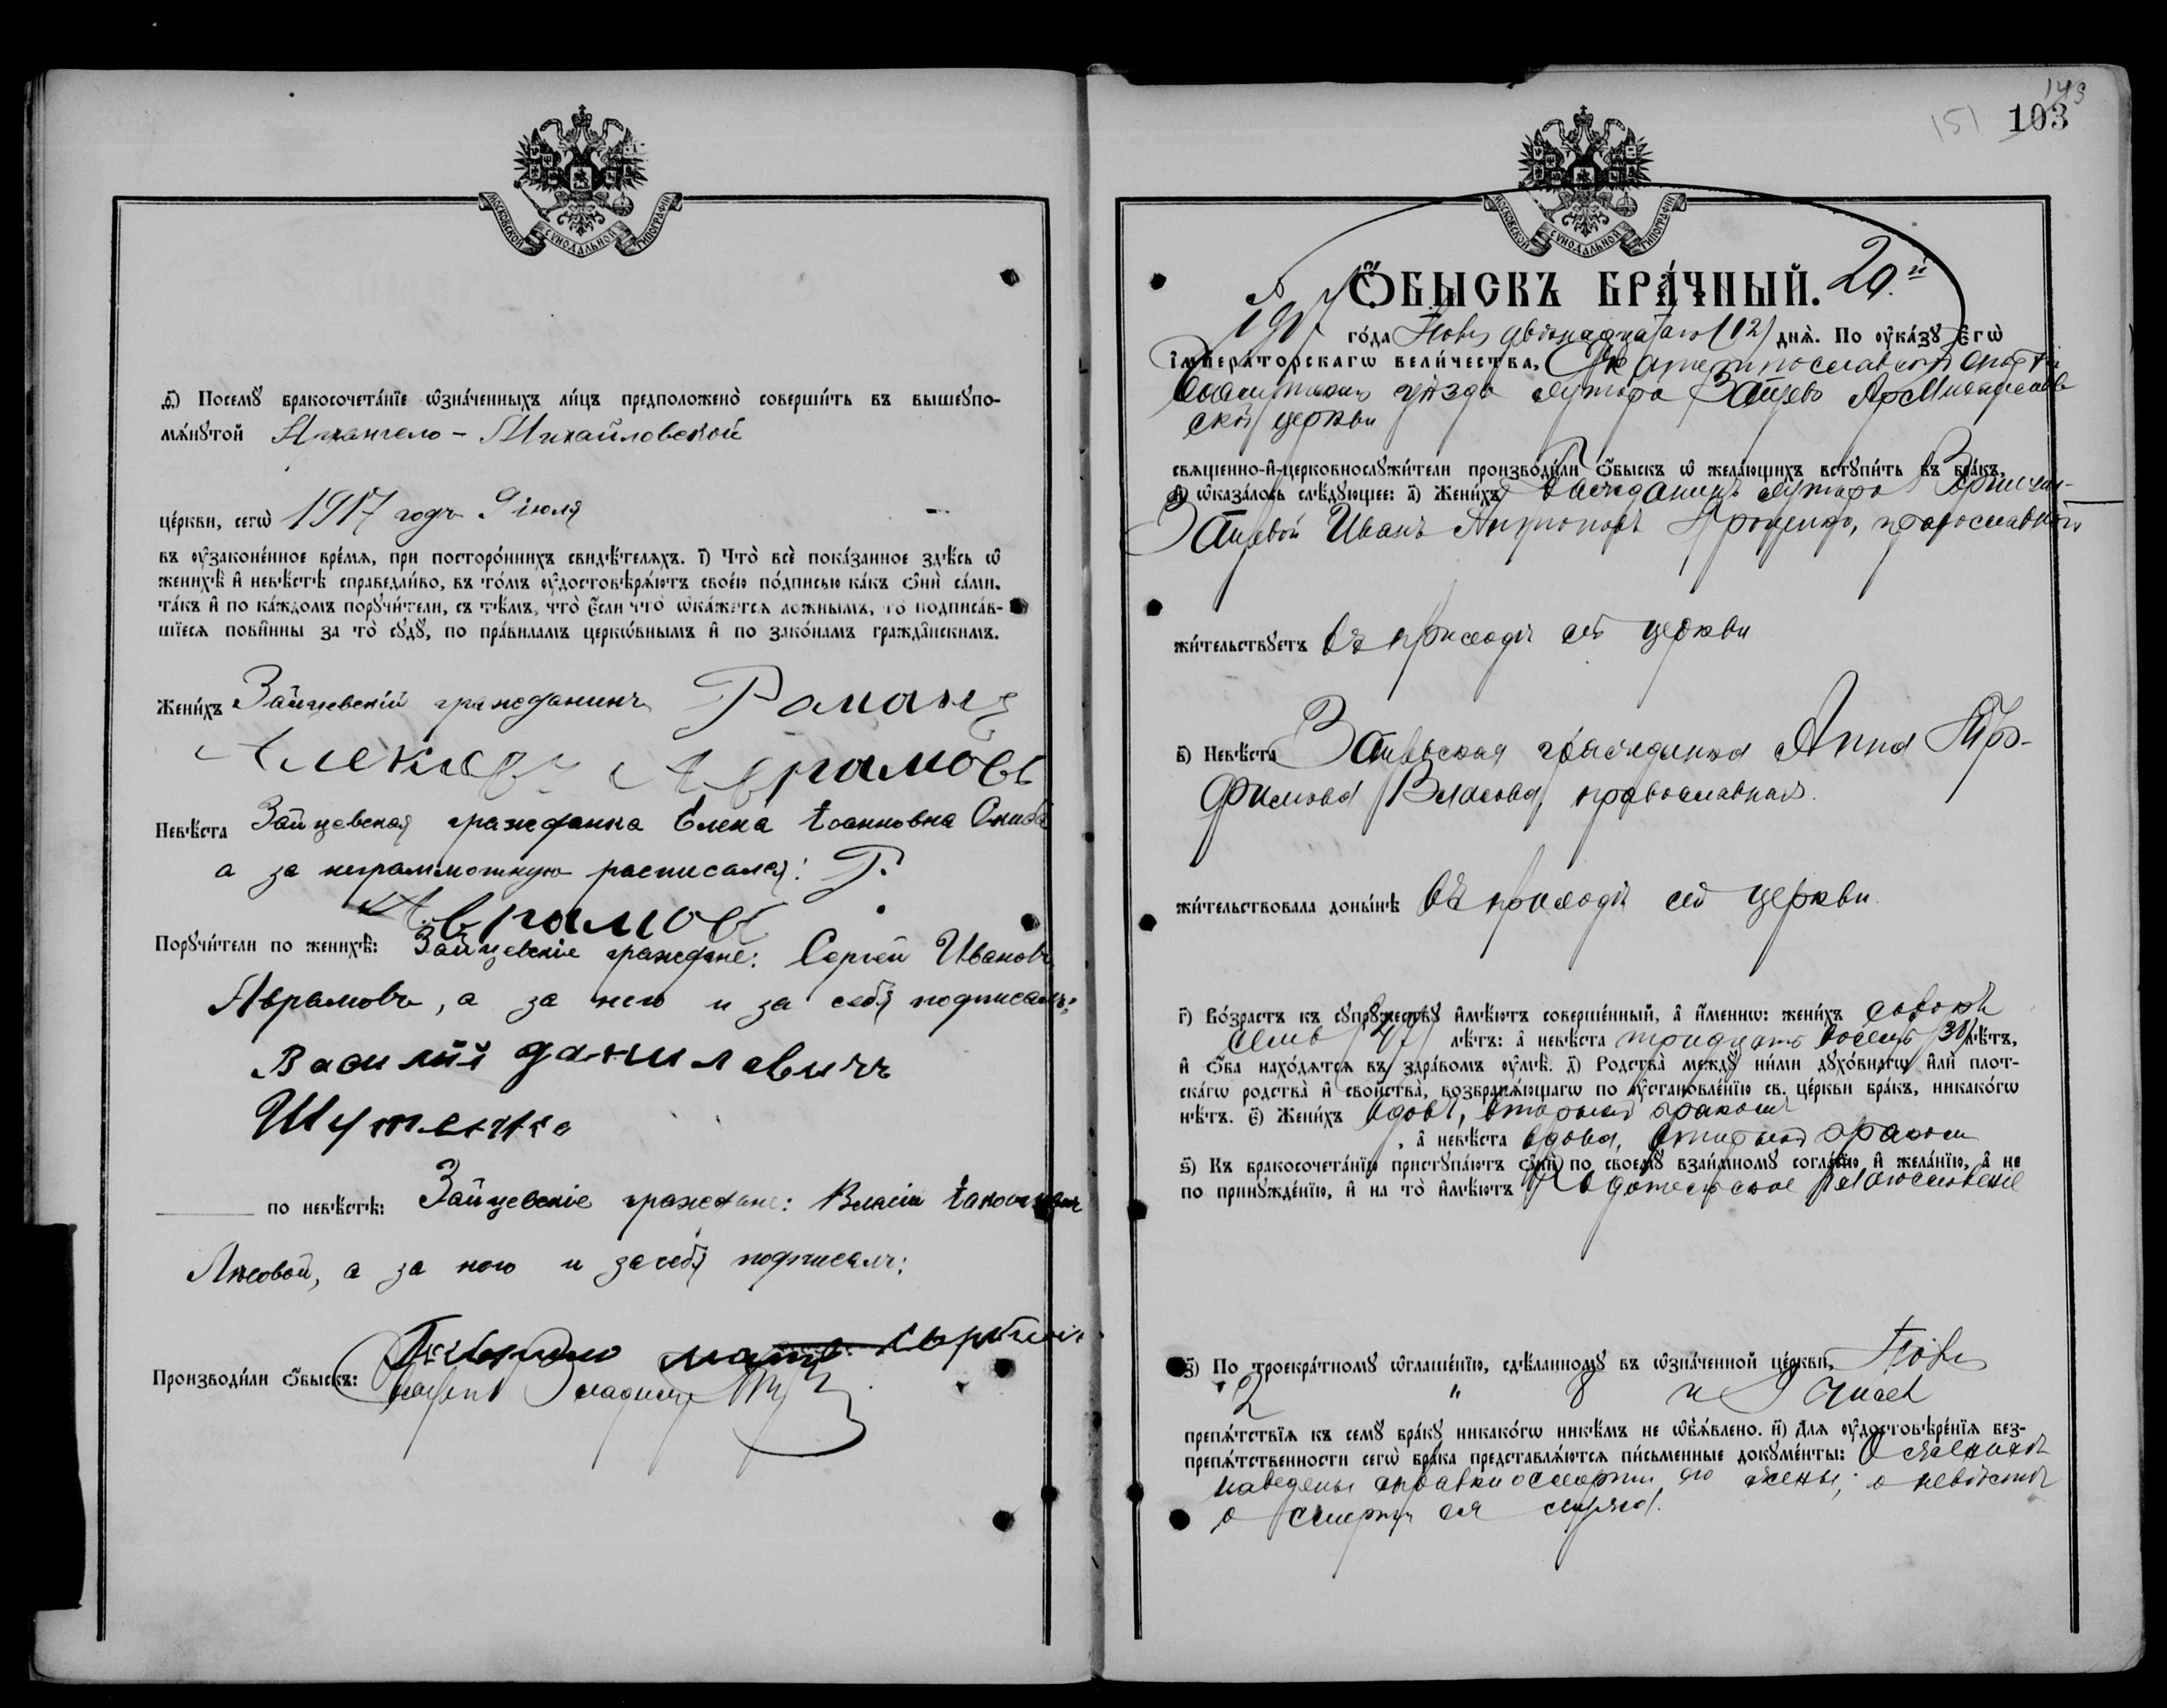 МОСКОВСКОЙ СУНОДАЛЬНОЙ ТИПОГРАФІИ
д҃) Посемꙋ̀ бракосочета́нїе ѡ҆зна́ченныхъ ли́цъ предположено̀ соверши́ть въ вышеꙋпо-
мѧ́нꙋтой Архангело - Михайловской
це́ркви, сегѡ̀ 1917 годъ 9 іюля
въ ᲂу҆зако́ненное вре́мѧ, при посторо́ннихъ свидѣ́телѧхъ. і҃) Что̀ всѐ пока́занное здѣ́сь ѡ҆
женихѣ̀ и҆ невѣ́стѣ справедли́во, въ то́мъ ᲂу҆достовѣрѧ́ютъ свое́ю по́дписью ка́къ ѻ҆нѝ са́ми.
та́къ и҆ по ка́ждомъ порꙋчи́тели, съ тѣ́мъ, что̀ є҆́сли что̀ ѡ҆ка́жетсѧ ло́жнымъ, то̀ подписа́в-
шїесѧ пови́нны за то̀ сꙋдꙋ̀, по пра́виламъ церко́внымъ и҆ по зако́намъ гражда́нскимъ.
Жени́хъ Зайцевскій гражданинъ Романъ
Алексѣев Аврамовъ
Невѣ́ста Зайцевская гражданка Елена Іоанновна
а за неграммотную росписался: Р.
Аврамов
Порꙋчи́тели по женихѣ̀: Зайцевскіе граждане: Сергѣй Ивановъ
Аврамовъ, а за него и за себя подписалъ:
Василий даниловичъ
Шутенко
по невѣ́стѣ: Зайцевскіе граждане: Власій
Лѣсовой, а за него и за себя подписалъ:
Производи́ли ѻ҆́быскъ:
149
151 103
МОСКОВСКОЙ СУНОДАЛЬНОЙ ТИПОГРАФІИ
Ѻ҆́БЫСКЪ БРА́ЧНЫЙ. 20.й
1917 го́да Ноября двѣнадцатаго (12) днѧ̀. По ᲂу҆ка́зꙋ є҆гѡ̀
і҆мпера́торскагѡ вели́чества, Екатеринославской епархіи
Бахмутскаго уѣзда хутора Зайцево Ар. Михайлов-
ской церкви
свѧще́нно-и҆-церковнослꙋжи́тели производи́ли ѻ҆́быскъ ѡ҆ жела́ющихъ встꙋпи́ть въ бра́къ,
и҆ ѡ҆каза́лось слѣ́дꙋющее: а҃) Жени́хъ гражданинъ хутора
Зайцевой Иванъ Проценко, православной
жи́тельствꙋетъ въ приходѣ сей церкви
в҃) Невѣ́ста Зайцевская гражданка Анна Тро-
фимова Власова, православная.
жи́тельствовала доны́нѣ въ приходѣ сей церкви.
г҃) Во́зрастъ къ сꙋпрꙋ́жествꙋ и҆мѣ́ютъ соверше́нный, а҆ и҆́меннѡ: жени́хъ сорокъ
семь (47) лѣ́тъ: а҆ невѣ́ста тридцать восемь (38) лѣ́тъ,
и҆ ѻ҆́ба нахо́дѧтсѧ въ здра́вомъ ᲂу҆мѣ̀. д҃) Родства̀ междꙋ̀ ни́ми дꙋхо́внагѡ и҆лѝ плот-
ска́гѡ родства̀ и҆ сво́йства̀, возбранѧ́ющагѡ по ᲂу҆становле́нїю св. це́ркви бра́къ, никако́гѡ
нѣ́тъ. є҃) Жени́хъ вдовъ, вторымъ бракомъ
, а҆ невѣ́ста вдова, вторымъ бракомъ
ѕ҃) Къ бракосочета́нїю пристꙋпа́ютъ ѻ҆нѝ по своемꙋ̀ взаи́мномꙋ согла́сїю и҆ жела́нїю, а҆ не
по принꙋжде́нїю, и҆ на то̀ и҆мѣ́ютъ Родительское благословеніе
з҃) По троекра́тномꙋ ѡ҆глаше́нїю, сдѣ́ланномꙋ въ ѡ҆зна́ченной це́ркви, Ноября
2 " 8 и 9 чисел
препѧ́тствїѧ къ семꙋ̀ бра́кꙋ никако́гѡ никѣ́мъ не ѡ҆б̾ѧ́влено. и҃) Длѧ ᲂу҆достовѣре́нїѧ без-
препѧ́тственности сегѡ̀ бра́ка представлѧ́ютсѧ пи́сьменные докꙋме́нты: О женихѣ
наведены справки о смерти его жены; о невѣстѣ
о смерти ея мужа.